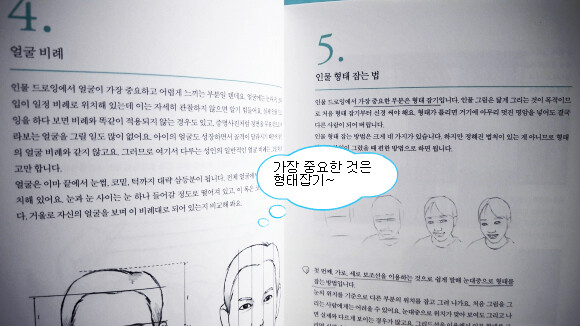 4.
얼굴 비례
인물 드로잉에서 얼굴이 가장 중요하고 어렵게 느끼는 부분일 텐데요. 얼굴에는
입이 일정 비례로 위치해 있는데 이는 자세히 관찰하지 않으면 알기 힘들어요.
일을 하다 보면 비례와 똑같이 적용되지 않는 경우도 있고, 증명사진처럼 정면을
라보는 얼굴을 그릴 일도 많이 없어요. 아이의 얼굴도 성장하면서 골격이
의 얼굴 비례와 같지 않고요. 그러므로 여기서 다루는 성인의 일반적인 얼굴
고만 합니다.
얼굴은 이마 끝에서 눈썹, 코밑, 턱까지 대략 삼등분이 됩니다. 전체 얼굴에
치해 있어요. 눈과 눈 사이는 눈 하나 들어갈 정도로 떨어져 있고 이 폭은
다. 거울로 자신의 얼굴을 보며 이 비례대로 되어 있는지 비교해 봐요.
5.
인물 형태 잡는 법
인물 드로잉에서 가장 중요한 부분은 형태 잡기입니다. 인물 그림은 닮게 그리는 것이 목적이므
로 처음 형태 잡기부터 신경 써야 해요. 형태가 틀리면 거기에 아무리 멋진 명암을 넣어도 결국
다른 사람이 되어 버립니다.
인물 형태 잡는 방법은 크게 네 가지가 있습니다. 하지만 정해진 법칙이 있는 게 아니므로 형태
그렸을 때 편한 방법으로 하면 됩니다.
가장 중요한 것은
형태잡기~
첫 번째, 가로, 세로 보조선을 이용하는 것으로 쉽게 말해 눈대중으로 형태를
잡는 방법입니다.
눈의 위치를 기준으로 다른 부분의 위치를 잡고 그려 나가요. 처음 그림을 그
리는 사람에게는 어려울 수 있어요. 눈대중으로 위치가 맞아 보여도 그리고 나
면 실제와 다르게 보이는 경우가 많고요.